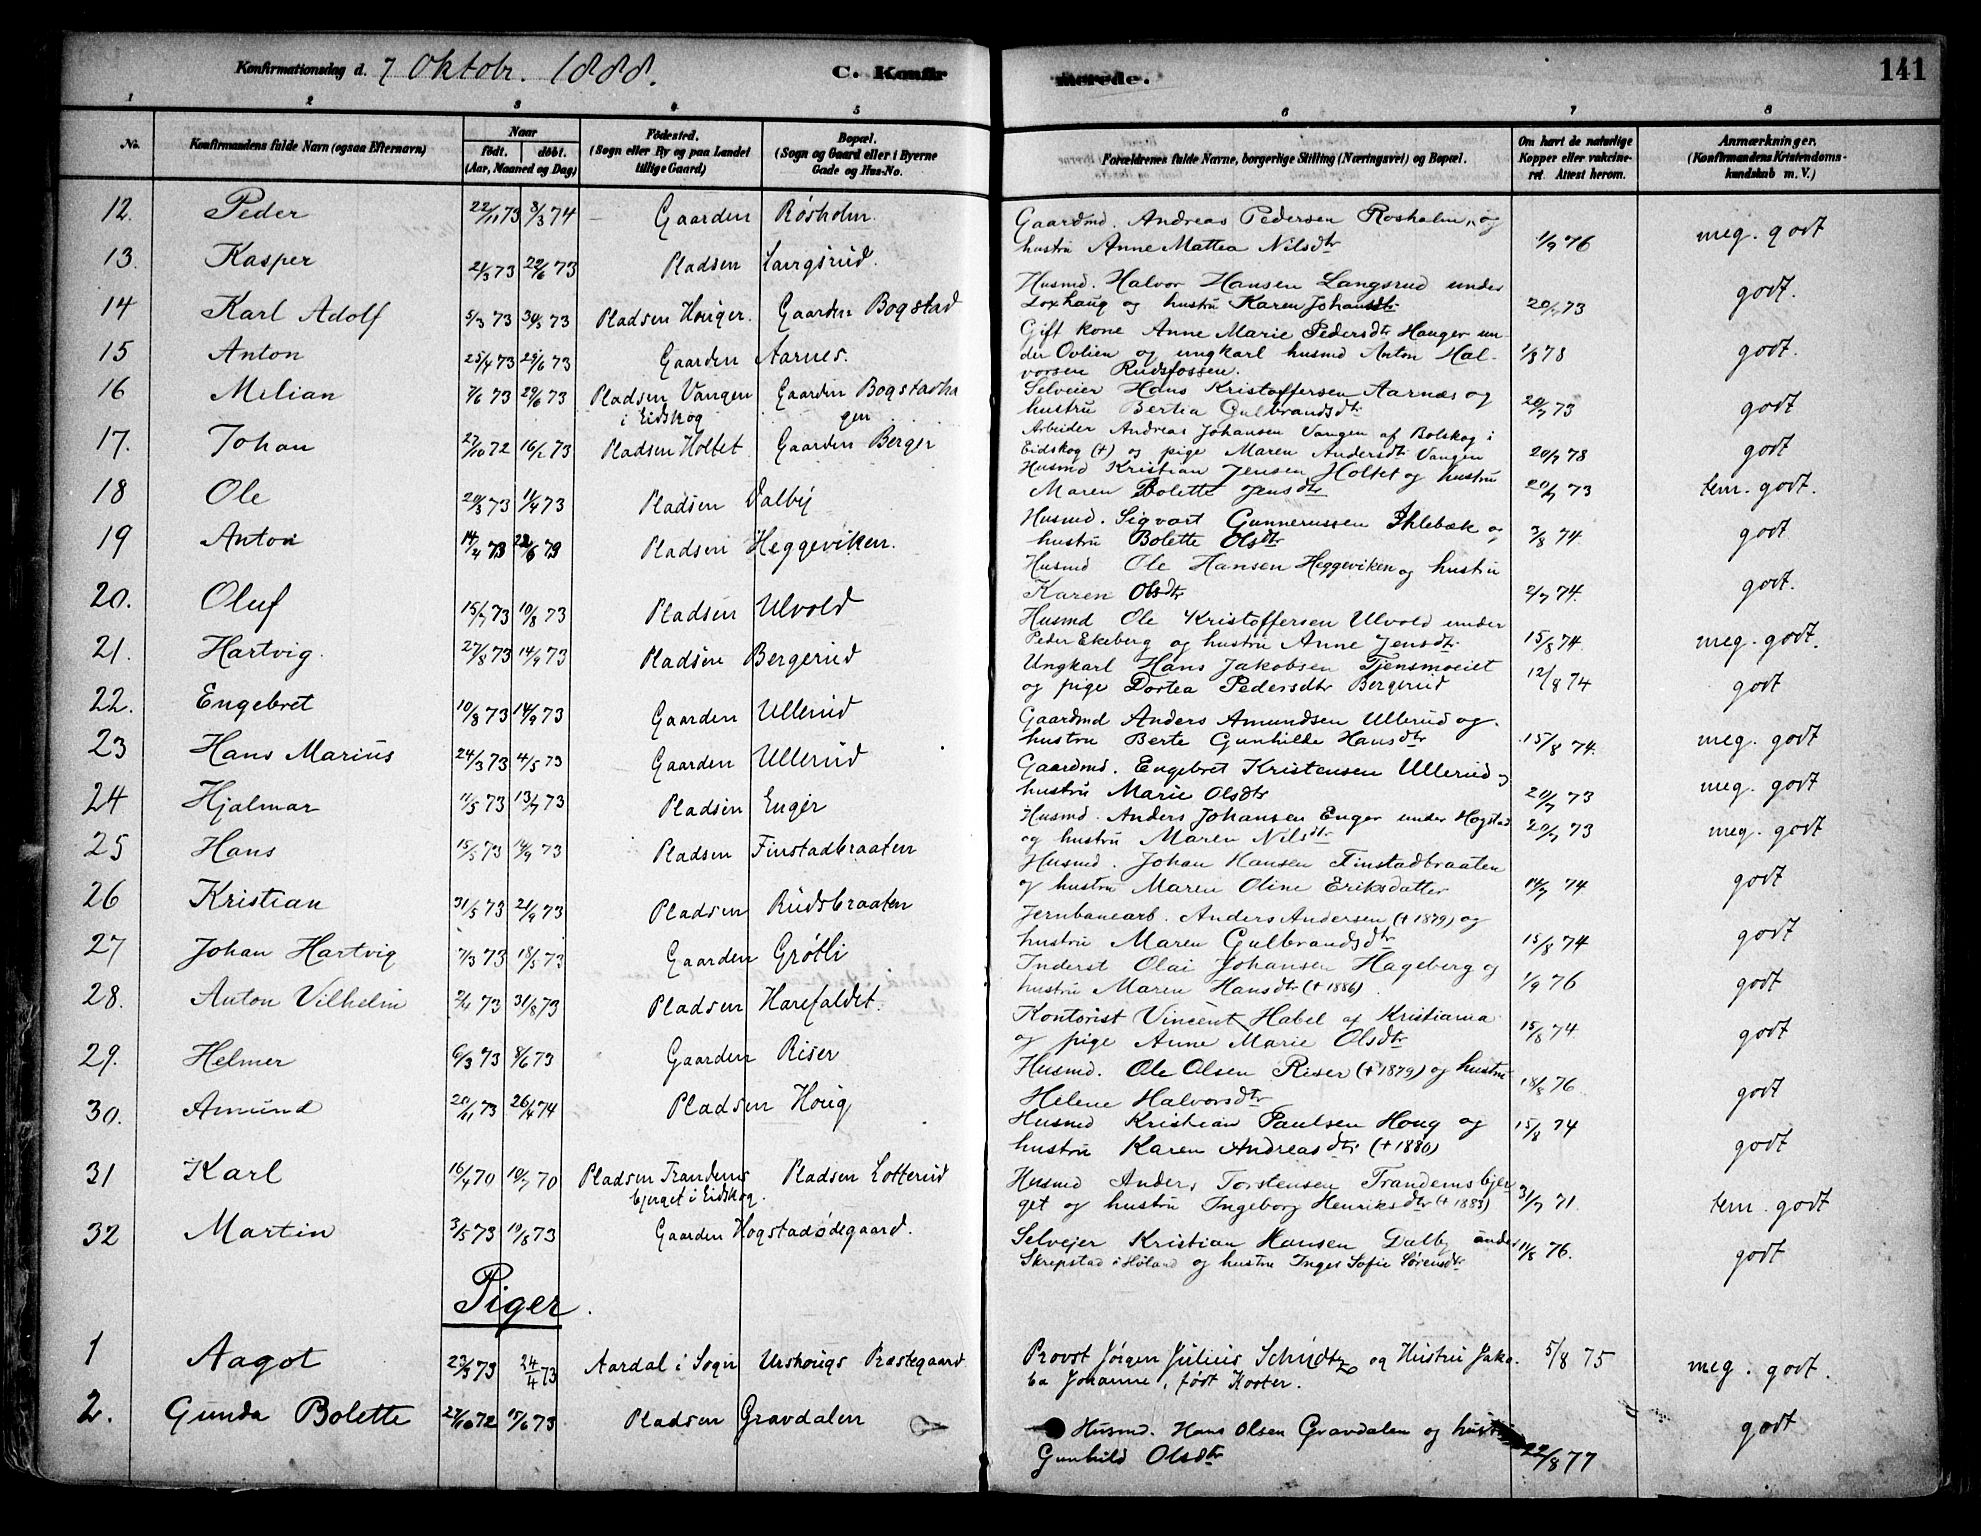 Konfirmationsdag d. 7 Oktobr. 1888. C. Konfirmerede. 141
1 2 3 4 5 6 7 8
No. Konfirmandens fulde Navn (ogsaa Efternavn) Naar født. døbt. (Aar, Maaned og Dag) Fødested. (Sogn eller By og paa Landet tillige Gaard) Bopæl. (Sogn og Gaard eller i Byerne Gade og Hus-No. Forældrenes fulde Navne, borgerlige Stilling (Næringsvei) og Bopæl. Om havt de naturlige Kopper eller vaccineret. Attest herom. Anmærkninger. (Konfirmandens Kristendomskundskab m. V.)
12. Peder 22/11 73 8/3 74 Gaarden Røsholm. Gaardmd. Andreas Pedersen Rosholm, og
hustru Anne Mattea Nilsdtr 1/9 76 meg. godt
13. Kasper 21/3 73 22/6 73 Pladsen Langsrud. Husmd. Halvor Hansen Langsrud under
Loxhaug og hustru Karen Johansdtr 20/7 73 godt.
14 Karl Adolf 5/3 73 3/5 73 Pladsen Houger. Gaarden Bogstad Gift kone Anne Marie Pedersdtr Hauger un-
der Ovlien og ungkarl husmd Anton Hal-
vorsen Rudsfossen. 1/8 78 godt.
15 Anton 25/4 73 29/6 73 Gaarden Aarnes. Selveier Hans Kristoffersen Aarnæs og
hustru Bertia Gulbrandsdtr 20/7 73 godt
16 Milian 7/6 73 29/6 73 Pladsen Vangen i Eidskog Gaarden Bogstadhagen Arbeider Andreas Johansen Vangen af Bolskog i
Eidskog (+) og pige Maren Andersdtr Vangen 20/7 78 godt
17. Johan 27/10 72 16/2 73 Pladsen Holtet Gaarden Berger Husmd Kristian Jensen Holtet og hustru
Maren Bolette Jensdtr 20/7 73 tem. godt.
18 Ole 20/3 73 11/4 73 Pladsen Dalby Husmd. Sigvart Gunnerussen Ihlebæk og
hustru Bolette Olsdtr 3/8 74. godt
19 Anton 14/4 73 22/6 73 Pladsen Heggeviken. Husmd Ole Hansen Heggeviken og hustru
Karen Olsdtr 2/7 74. godt.
20. Oluf 15/7 73 10/8 73 Pladsen Ulvold Husmd Ole Kristoffersen Ulvold under
Peder Ekeberg og hustru Anne Jensdtr. 15/8 74. meg. godt.
21. Hartvig. 27/8 73 14/9 73 Pladsen Bergerud Ungkarl Hans Jakobsen Tjensmoeiet
og pige Dortea Pedersdtr Bergerud 12/8 74 godt
22. Engebret 10/8 73 14/9 73 Gaarden Ullerud Gaardmd Anders Amundsen Ullerud og
hustru Berte Gunhilde Hansdtr 15/8 74. meg. godt
23 Hans Marius 24/3 73 4/5 73 Gaarden Ullerud Gaardmd. Engebret Kristensen Ullerud og
hustru Marie Olsdtr 20/7 73 meg. godt
24 Hjalmar 11/5 73 13/7 73 Pladsen Enger Husmd. Anders Johansen Enger under Hogstad
og hustru Maren Nilsdtr 20/7 73 meg. godt
25 Hans 15/5 73 14/9 73 Pladsen Finstadbraaten Husmd. Johan Hansen Finstadbraaten
og hustru Maren Oline Eriksdatter 14/7 74 godt
26 Kristian 31/5 73 21/9 73 Pladsen Rudsbraaten Jernbanearb. Anders Andersen (+1879) og
hustru Maren Gulbrandsdtr 15/8 74 godt
27 Johan Hartvig 7/3 73 18/5 73 Gaarden Grøtli Inderst Olai Johansen Hageberg og
hustru Maren Hansdtr (+1886). 1/9 76 godt
28. Anton Vilhelm 2/4 73 31/8 73 Pladsen Harefaldet. Kontorist Vincent Habel af Kristiania
og pige Anne Marie Olsdtr 15/8 74. godt
29. Helmer 6/3 73 8/6 73 Gaarden Riser Husmd. Ole Olsen Riser (+1879) og hustru
Helene Halvorsdtr 18/8 76 godt
30. Amund 20/11 73 26/4 74 Pladsen Houg Husmd Kristian Paulsen Houg og
hustru Karen Andreasdtr (+1880) 15/8 74 godt
31 Karl 16/4 70 10/7 70 Pladsen Trandems bjerget i Eidskog. Pladsen Lotterud Husmd Anders Torstensen Trandemsbjer-
get og hustru Ingeborg Henriksdtr (+1883) 31/7 71. tem. godt
32 Martin 3/5 73 19/8 73 Gaarden Hogstadødegaard. Selvejer Kristian Hansen Dalby under
Skrepstad i Høland og hustru Inger Sofie Sørensdtr 11/8 76. godt
Piger.
1 Aagot 23/3 73 24/4 73 Aardal i Sogn Urskougs Præstegaard. Provst Jørgen Julius Schüdtz og Hustru Jako-
ba Johanne, født Koster. 5/8 75 meg. godt.
2. Gunda Bolette 27/10 72 15/6 73 Pladsen Gravdalen Husmd. Hans Olsen Gravdalen og hustru
Gunhild Olsdtr 22/8 77 godt